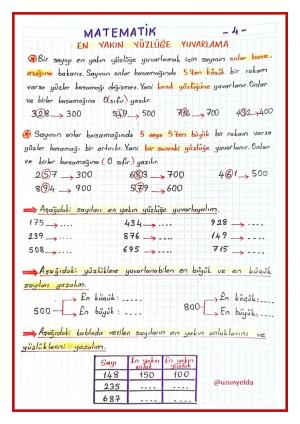 MATEMATİK -4-
EN YAKIN YÜZLÜĞE YUVARLAMA
Bir sayıyı en yakın yüzlüğe yuvarlamak için sayının onlar basa-
mağına bakarız. Sayının onlar basamağında 5'ten küçük bir rakam
varsa yüzler basamağı değişmez. Yani kendi yüzlüğüne yuvarlanır. Onlar
ve birler basamağına (0 sıfır) yazılır.
328 → 300 549 → 500 706 → 700 432 → 400
Sayının onlar basamağında 5 veya 5'ten büyük bir rakam varsa
yüzler basamağı bir artırılır. Yani bir sonraki yüzlüğe yuvarlanır. Onlar
ve birler basamağına (0 sıfır) yazılır.
257 → 300 683 → 700 461 → 500
894 → 900 579 → 600
Aşağıdaki sayıları en yakın yüzlüğe yuvarlayalım.
175 → .... 434 → .... 928 → ....
239 → .... 876 → .... 149 → ....
508 → .... 695 → .... 715 → ....
Aşağıdaki yüzlüklere yuvarlanabilen en büyük ve en küçük
sayıları yazalım.
500 En küçük: .... 800 En küçük: ....
En büyük: .... En büyük: ....
Aşağıdaki tabloda verilen sayıların en yakın onluklarını ve
yüzlüklerini yazalım.
Sayı En yakın onluk En yakın yüzlük
148 150 100
235 .... ....
687 .... ....
@uzunyelda